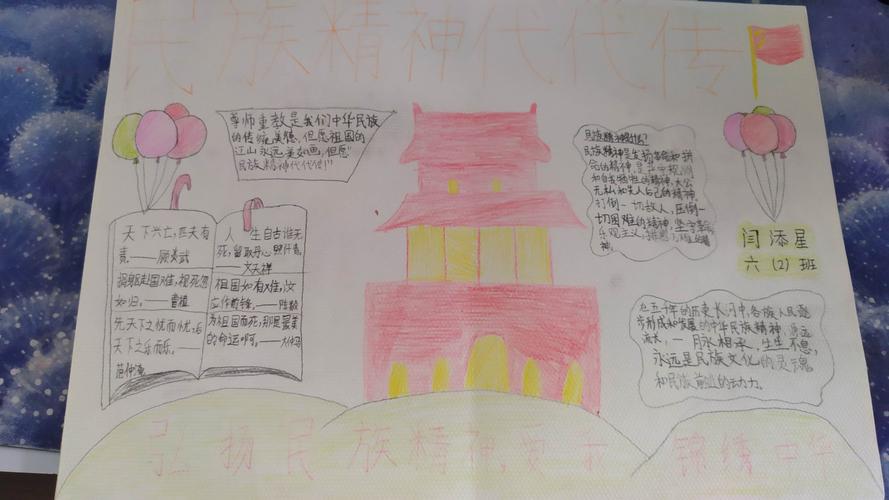 民族精神代代传
尊师重教是我们中华民族
的传统美德,但愿祖国的
江山永远美如画,但愿"
民族精神代代传!"
天下兴亡,匹夫有
责。——顾炎武
捐躯赴国难,视死忽
如归。——曹植
先天下之忧而忧,后
天下之乐而乐。——
范仲淹
人生自古谁无
死,留取丹心照汗青。
——文天祥
祖国如有难,汝
应作前锋。——陈毅
为祖国而死,那是最美
的命运啊。——大仲马
民族精神是什么?
民族精神是发扬革命和拼
命的精神,是
和自我牺牲的精神,大公
无私和先人后己的精神,
打倒一切敌人,压倒一
切困难的精神,坚守革命
乐观主义,排
神。
闫添星
六(2)班
在五千年的历史长河中,各族人民逐
步形成和发展的中华民族精神,源远
流长,一脉相承,生生不息,
永远是民族文化的灵魂
和民族前业的动力。
弘扬民族精神,爱我锦绣中华